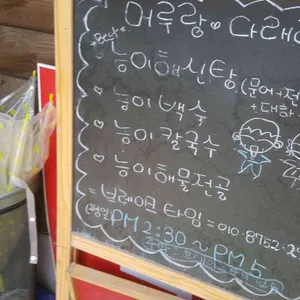 머루랑♡다래
*Best*
능이해신탕 (문어+전
+대하
♡ 능이백숙
♡ 능이칼국수
♡ 능이해물전골
= 브레이크 타임 = 010·8752·2
(평일) PM 2:30 ~ PM 5